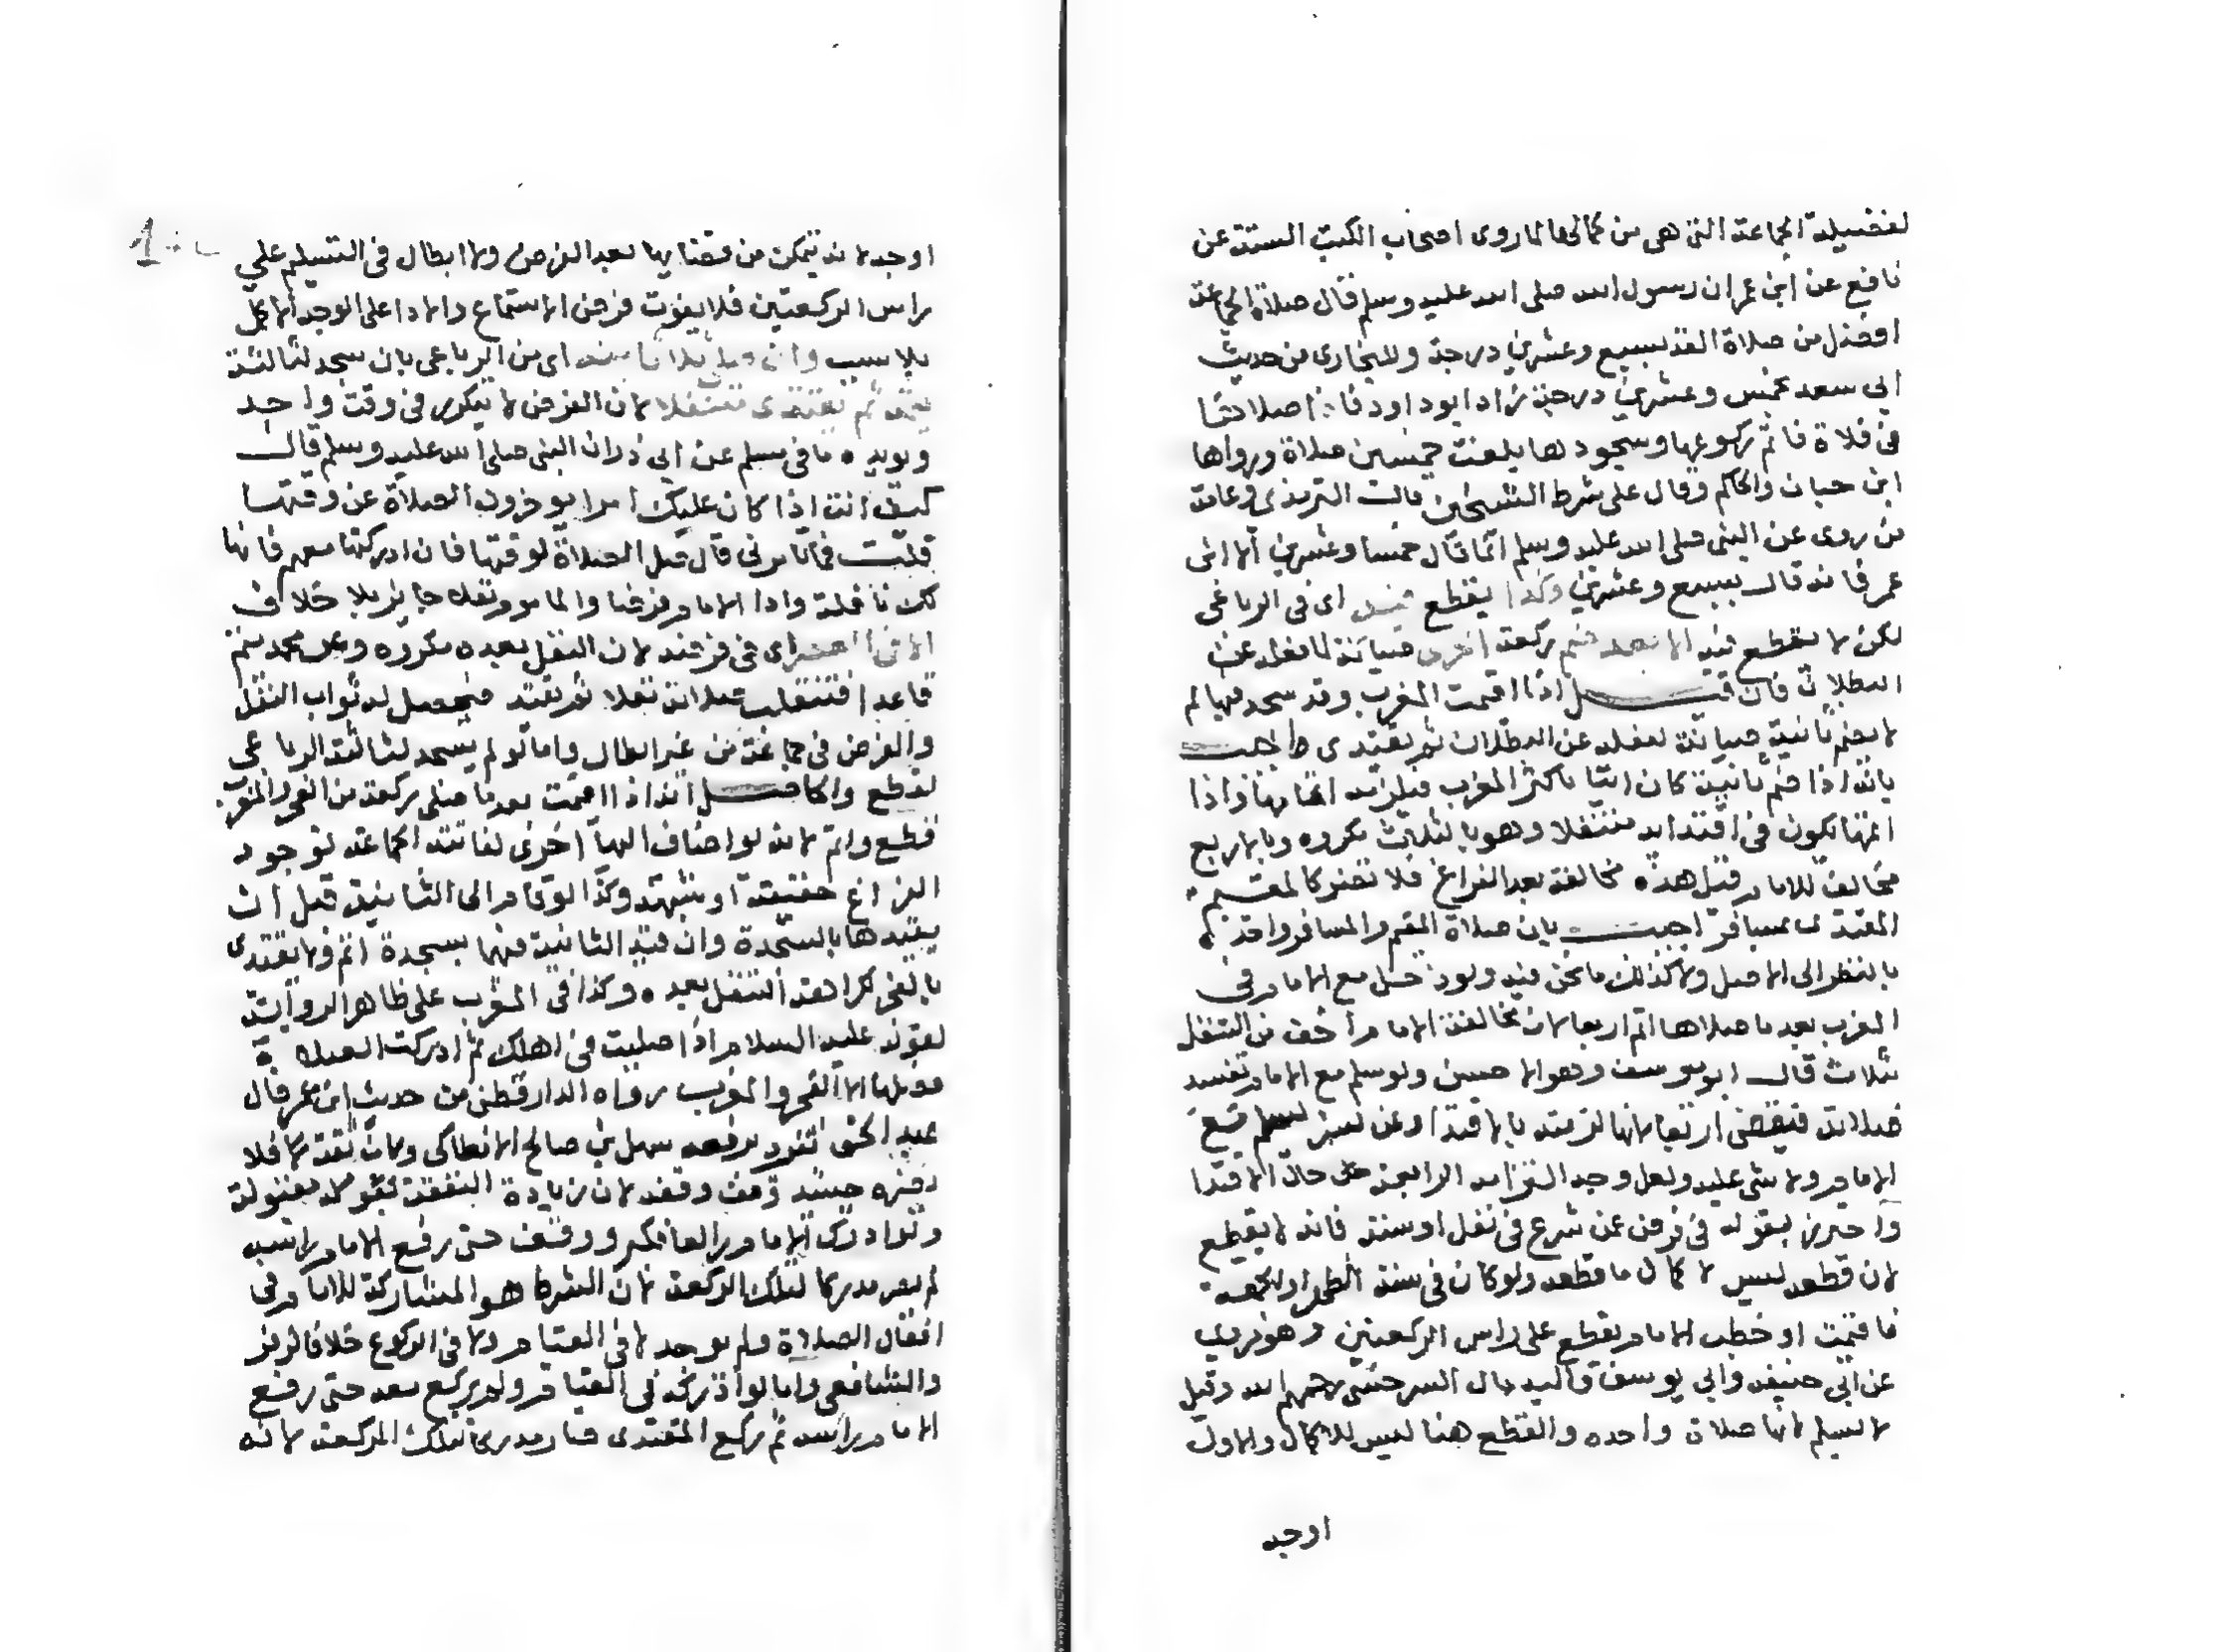 لفضيلة الجماعة التى هى من كمالها لما روى اصحاب الكتب الستة عن
نافع عن ابن عمر ان رسول الله صلى الله عليه وسلم قال صلاة الجماعة
افضل من صلاة الفذ بسبع وعشرين درجة وللبخارى من حديث
ابى سعد بخمس وعشرين درجة زاد ابو داود فاذا صلاها
فى فلاة فاتم ركوعها وسجودها بلغت خمسين صلاة ورواها
ابن حبان والحاكم وقال على شرط الشيخين قالت الترمذى وعامة
من روى عن النبى صلى الله عليه وسلم انما قال خمسا وعشرين الا ابن
عمر فانه قال بسبع وعشرين وكذا يقطع فيه اى فى الرباعى
لكن لا يقطع فيه الا بعد ضم ركعة اخرى صيانة لفعله عن
البطلان فان قيل اذا اقيمت المغرب وقد سجد فيها لم
لا يضم ثانية صيانة لفعله عن البطلان ثم يقتدى اجيب
بانه اذا ضم ثانية كان اتيا باكثر المغرب فيلزمه اتمامها واذا
اتمها يكون فى اقتدايه متنفلا وهو بالثلاث مكروه وبالاربع
مخالف للامام قيل هذه مخالفة بعد الفراغ فلا تضر كالمقيم
المقتدى بمسافر اجيب بان صلاة المقيم والمسافر واحدة
بالنظر الى الاصل ولا كذلك ما نحن فيه ولو دخل مع الامام فى
المغرب بعد ما صلاها اتم اربعا لان مخالفة الامام اخف من التنفل
بثلاث قال ابو يوسف وهو الاحسن ولو سلم مع الامام تفسد
صلاته فيقضى اربعا لانها لزمته بالاقتدا وعن بشر يسلم مع
الامام ولا شى عليه ولعل وجه التزامه الرابعة حال الاقتدا
واحترز بقوله فى فرض عن شرع فى نفل او سنة فانه لا يقطع
لان قطعه ليس لاكمال ما قطعه ولو كان فى سنة الظهر او الجمعة
فاقيمت او خطب الامام يقطع على راس الركعتين وهو مروى
عن ابى حنيفه وابى يوسف واليه مال السرخسى رحمهم الله وقيل
لا يسلم لانها صلاة واحده والقطع هنا ليس للاكمال والاول
اوجه
اوجه لانه يتمكن من قضايها بعد الفرض ولا ابطال فى التسليم على
راس الركعتين فلا يفوت فرض الاستماع والادا على الوجه الاكمل
بلا سبب وان صلى ثلاثا منه اى من الرباعى بان سجد للثالثة
يتم ثم يقتدى متنفلا لان الفرض لا يتكرر فى وقت واحد
ويويده ما فى مسلم عن ابى ذر ان النبى صلى الله عليه وسلم قال
كيف انت اذا كان عليك امرا يوخرون الصلاة عن وقتها
قلت فما تامرنى قال صل الصلاة لوقتها فان ادركتها معهم فانها
لك نافلة واذا الامام فرضا والمامور نفله جايز بلا خلاف
الا فى العصر اى فى فرضه لان النفل بعده مكروه وعن محمد يتم
قاعدا فتنقلب صلاته نفلا ثم يقتد فيحصل له ثواب النفل
والفرض فى جماعة من غير ابطال واما لو لم يسجد لثالثة الرباعى
لقطع والحاصل انه اذا اقيمت بعد ما صلى ركعة من الفجر والمغرب
قطع واتم لانه لو اضاف اليها اخرى لفاتته الجماعة لوجود
الفراغ حقيقة او شبهة وكذا لو قام الى الثانية قبل ان
يقيدها بالسجدة وان قيد الثانية فيها بسجدة اتم ولا يقتدى
بالفجر لكراهة النفل بعده وكذا فى المغرب على ظاهر الرواية
لقوله عليه السلام اذا صليت فى اهلك ثم ادركت الصلاة
فصلها الا الفجر والمغرب رواه الدارقطنى من حديث ابن عمر قال
عبد الحق تفرد برفعه سهل بن صالح الانطاكى وكان ثقة فلا
يضره حينيذ وقف وقفه لان زيادة الثقة مقبولة
ولو ادرك الامام راكعا فكبر ووقف حتى رفع الامام راسه
لم يصر مدركا لتلك الركعة لان الشرط هو المشاركة للامام فى
افعال الصلاة ولم يوجد لا فى القيام ولا فى الركوع خلافا لزفر
والشافعى واما لو ادركه فى القيام ولم يركع معه حتى رفع
الامام راسه ثم ركع المقتدى صار مدركا لتلك الركعة لانه